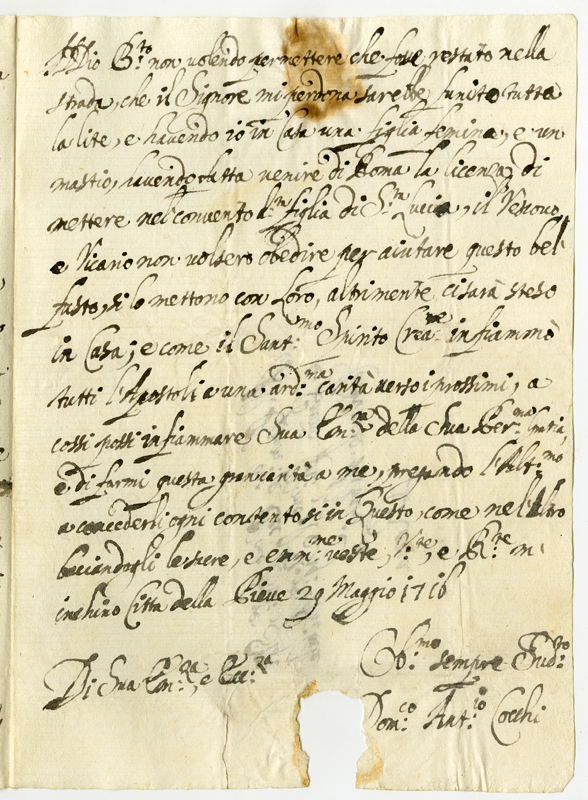 Iddio B.to non volendo permettere che fosse restato nella
strada, che il Signore mi perdona sarebbe funito tutta
la lite, e havendo io in Casa una figlia femina, e un
mastio, havendo fatta venire di Roma la licenza di
mettere nel convento d.a figlia di S.ta Lucia, il Vescovo
e Vicario non volsero obedire per aiutare questo bel
fusto, si lo mettono con Loro, altrimente ci sarà steso
in Casa; e come il Sant.mo Spirito infiammò
tutti l'Apostoli a una ard.ma carità verso i prossimi, a
cossi possi infiammare Sua Em.za della Sua
e di farmi questa gran carità a me, pregando l'Alt.mo
a concederli ogni contento si in Questo, come nel'Altro
baciandogli le sacre, e em.me veste, e
inchino Citta della Pieve 29 Maggio 1716
Di Sua Em.za, e Ecc.za
Ob.mo sempre
Dom.co Ant.io Cocchi